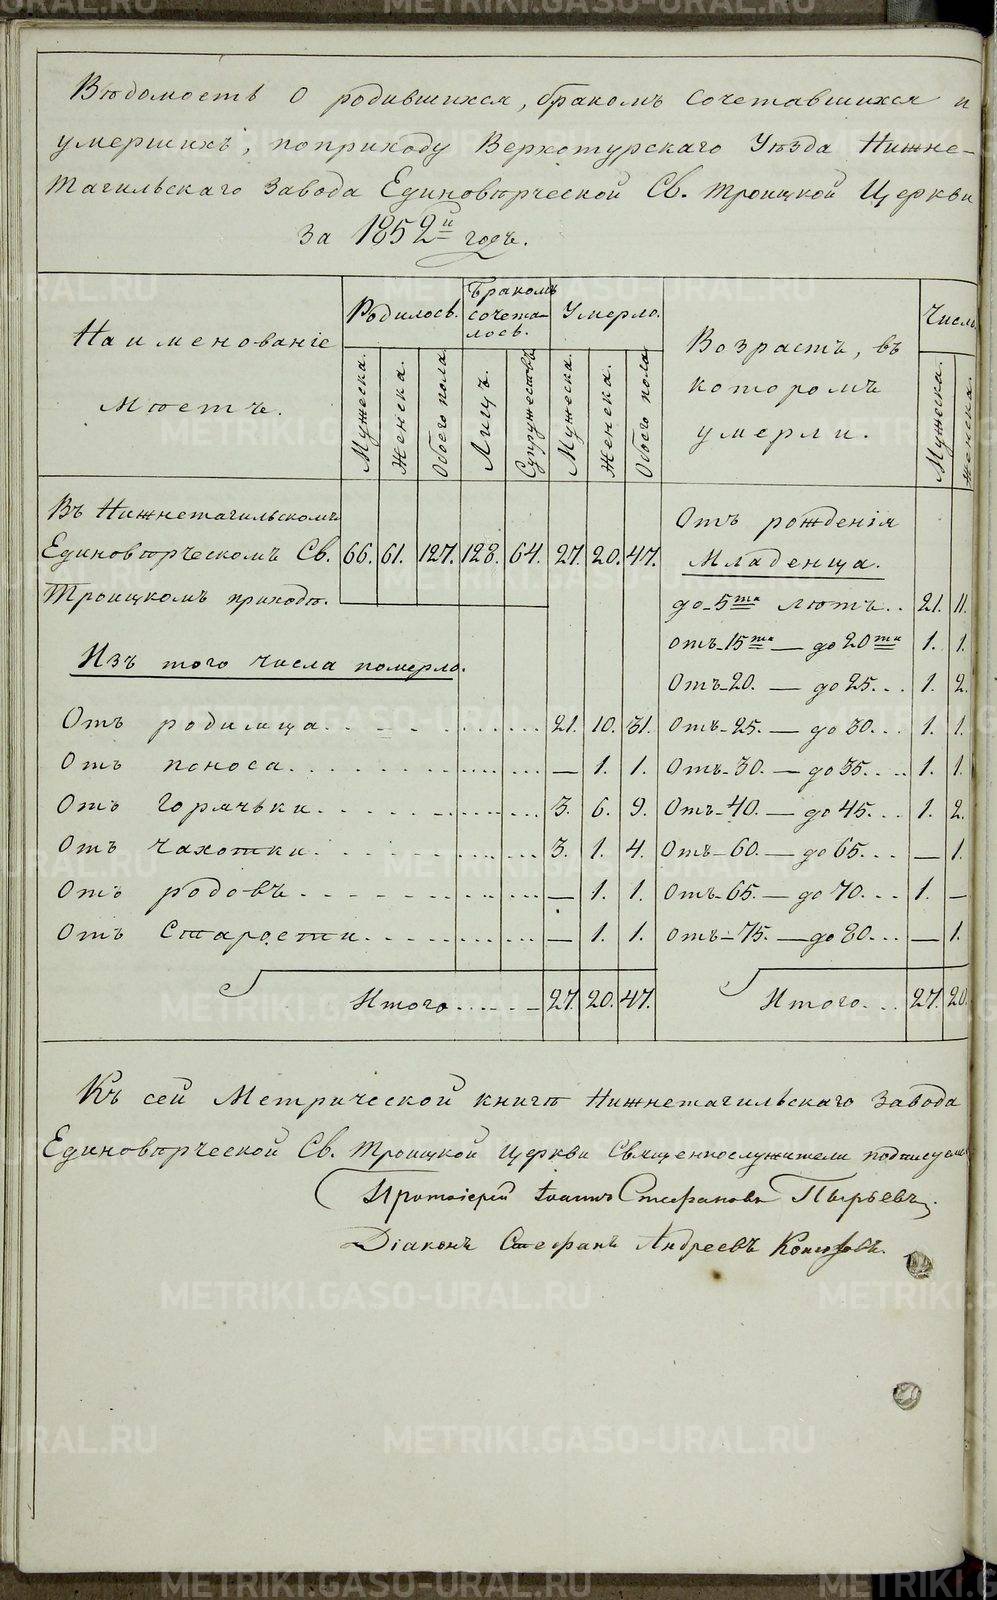 Вѣдомость о родившихся, бракомъ сочетавшихся и
умершихъ, по приходу Верхотурскаго Уѣзда Нижне-
Тагильскаго Завода Единовѣрческой Св. Троицкой Церкви
за 1852й годъ.
Наименованіе Мѣстъ. Родилось. Бракомъ сочеталось. Умерло. Возрастъ, въ которомъ умерли. Число
Мужеска. Женска. Обоего пола. Лицъ. Супружествъ Мужеска. Женска. Обоего пола Мужеска. Женска.
Въ Нижнетагильскомъ
Единовѣрческомъ Св. 66. 61. 127. 128. 64. 27. 20. 47.
Троицкомъ приходѣ.
Изъ того числа померло.
Отъ родимца 21. 10. 31.
Отъ поноса — 1. 1.
Отъ горячьки 3. 6. 9.
Отъ чахотки 3. 1. 4.
Отъ родовъ — 1. 1.
Отъ Старости — 1. 1.
Итого 27. 20. 47.
Отъ рожденія
Младенца.
до 5ти лѣтъ 21. 11.
Отъ 15ти — до 20ти 1. 1.
Отъ 20. — до 25. 1. 2.
Отъ 25. — до 30. 1. 1.
Отъ 30. — до 35. 1. 1.
Отъ 40. — до 45. 1. 2.
Отъ 60. — до 65. — 1.
Отъ 65. — до 70. 1. —
Отъ 75. — до 80. — 1.
Итого 27. 20.
Къ сей Метрической книгѣ Нижнетагильскаго Завода
Единовѣрческой Св. Троицкой Церкви Священнослужители
Протоіерей Іоаннъ Стефановъ Пырьевъ.
Діаконъ Стефанъ Андреевъ
METRIKI.GASO-URAL.RU